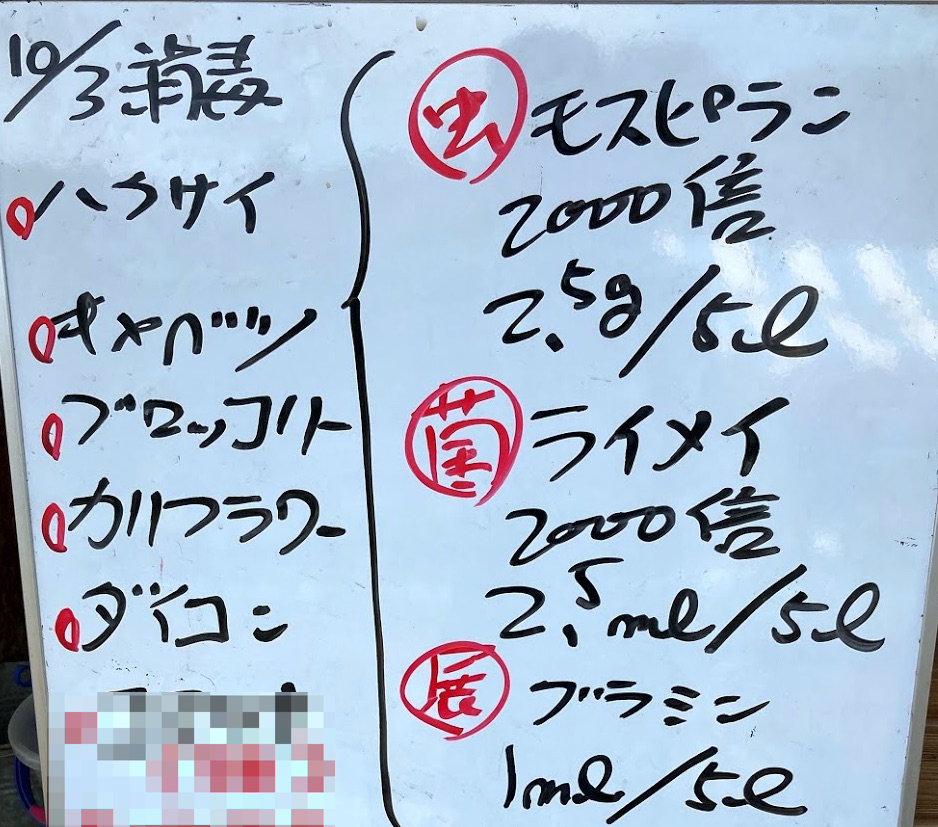 10/3 消毒
ハクサイ
キャベツ
ブロッコリー
カリフラワー
ダイコン
虫 モスピラン
2000倍
2.5g/5l
菌 ライメイ
2000倍
2.5ml/5l
展 ブラミン
1ml/5l